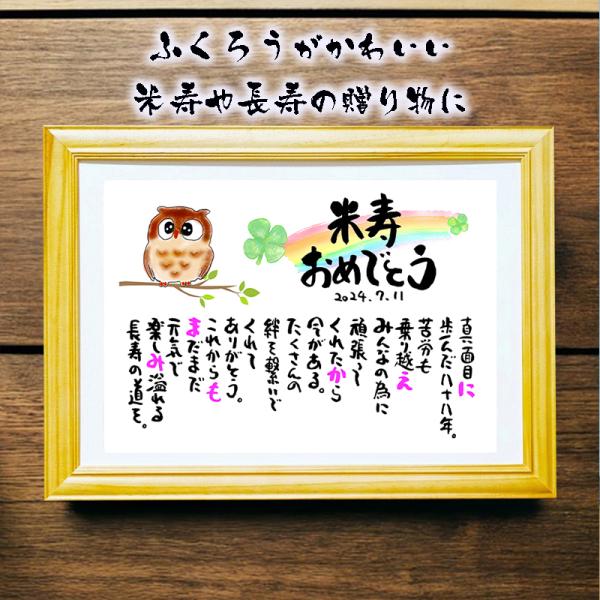 ふくろうがかわいい
米寿や長寿の贈り物に
米寿
おめでとう
2024.7.11
真面目に
歩んだ八十八年。
苦労も
乗り越え
みんなの為に
頑張って
くれたから
今がある。
たくさんの
絆を繋いで
くれて
ありがとう。
これからも
まだまだ
元気で
楽しみ溢れる
長寿の道を。